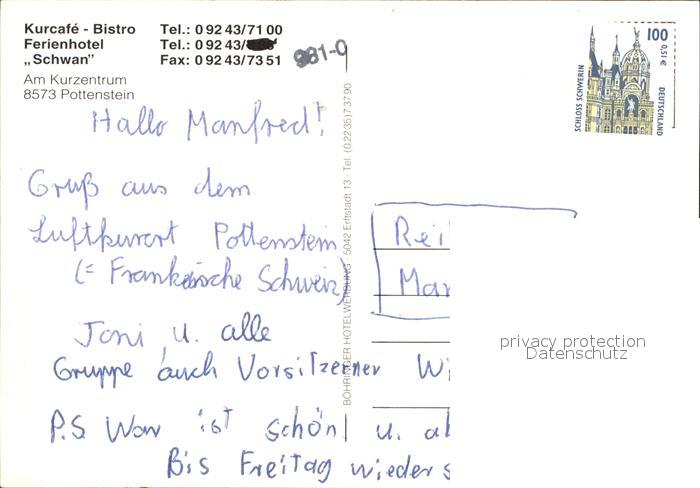 Kurcafé - Bistro Tel.: 0 92 43/71 00
Ferienhotel Tel.: 0 92 43/
„Schwan” Fax: 0 92 43/73 51
981-0
Am Kurzentrum
8573 Pottenstein
100 0,51 €
SCHLOSS SCHWERIN
DEUTSCHLAND
Hallo Manfred!
Gruß aus dem
Luftkurort Pottenstein
(= Frankische Schweiz)
Joni u. alle
Gruppe auch Vorsitzenner Wi
P.S. War ist schön u. al
Bis Freitag wieder s
BÖHRINGER HOTELWERBUNG · 5042 Erftstadt 13 · Tel. (0 2235) 737 90
Rei
Mar
privacy protection
Datenschutz